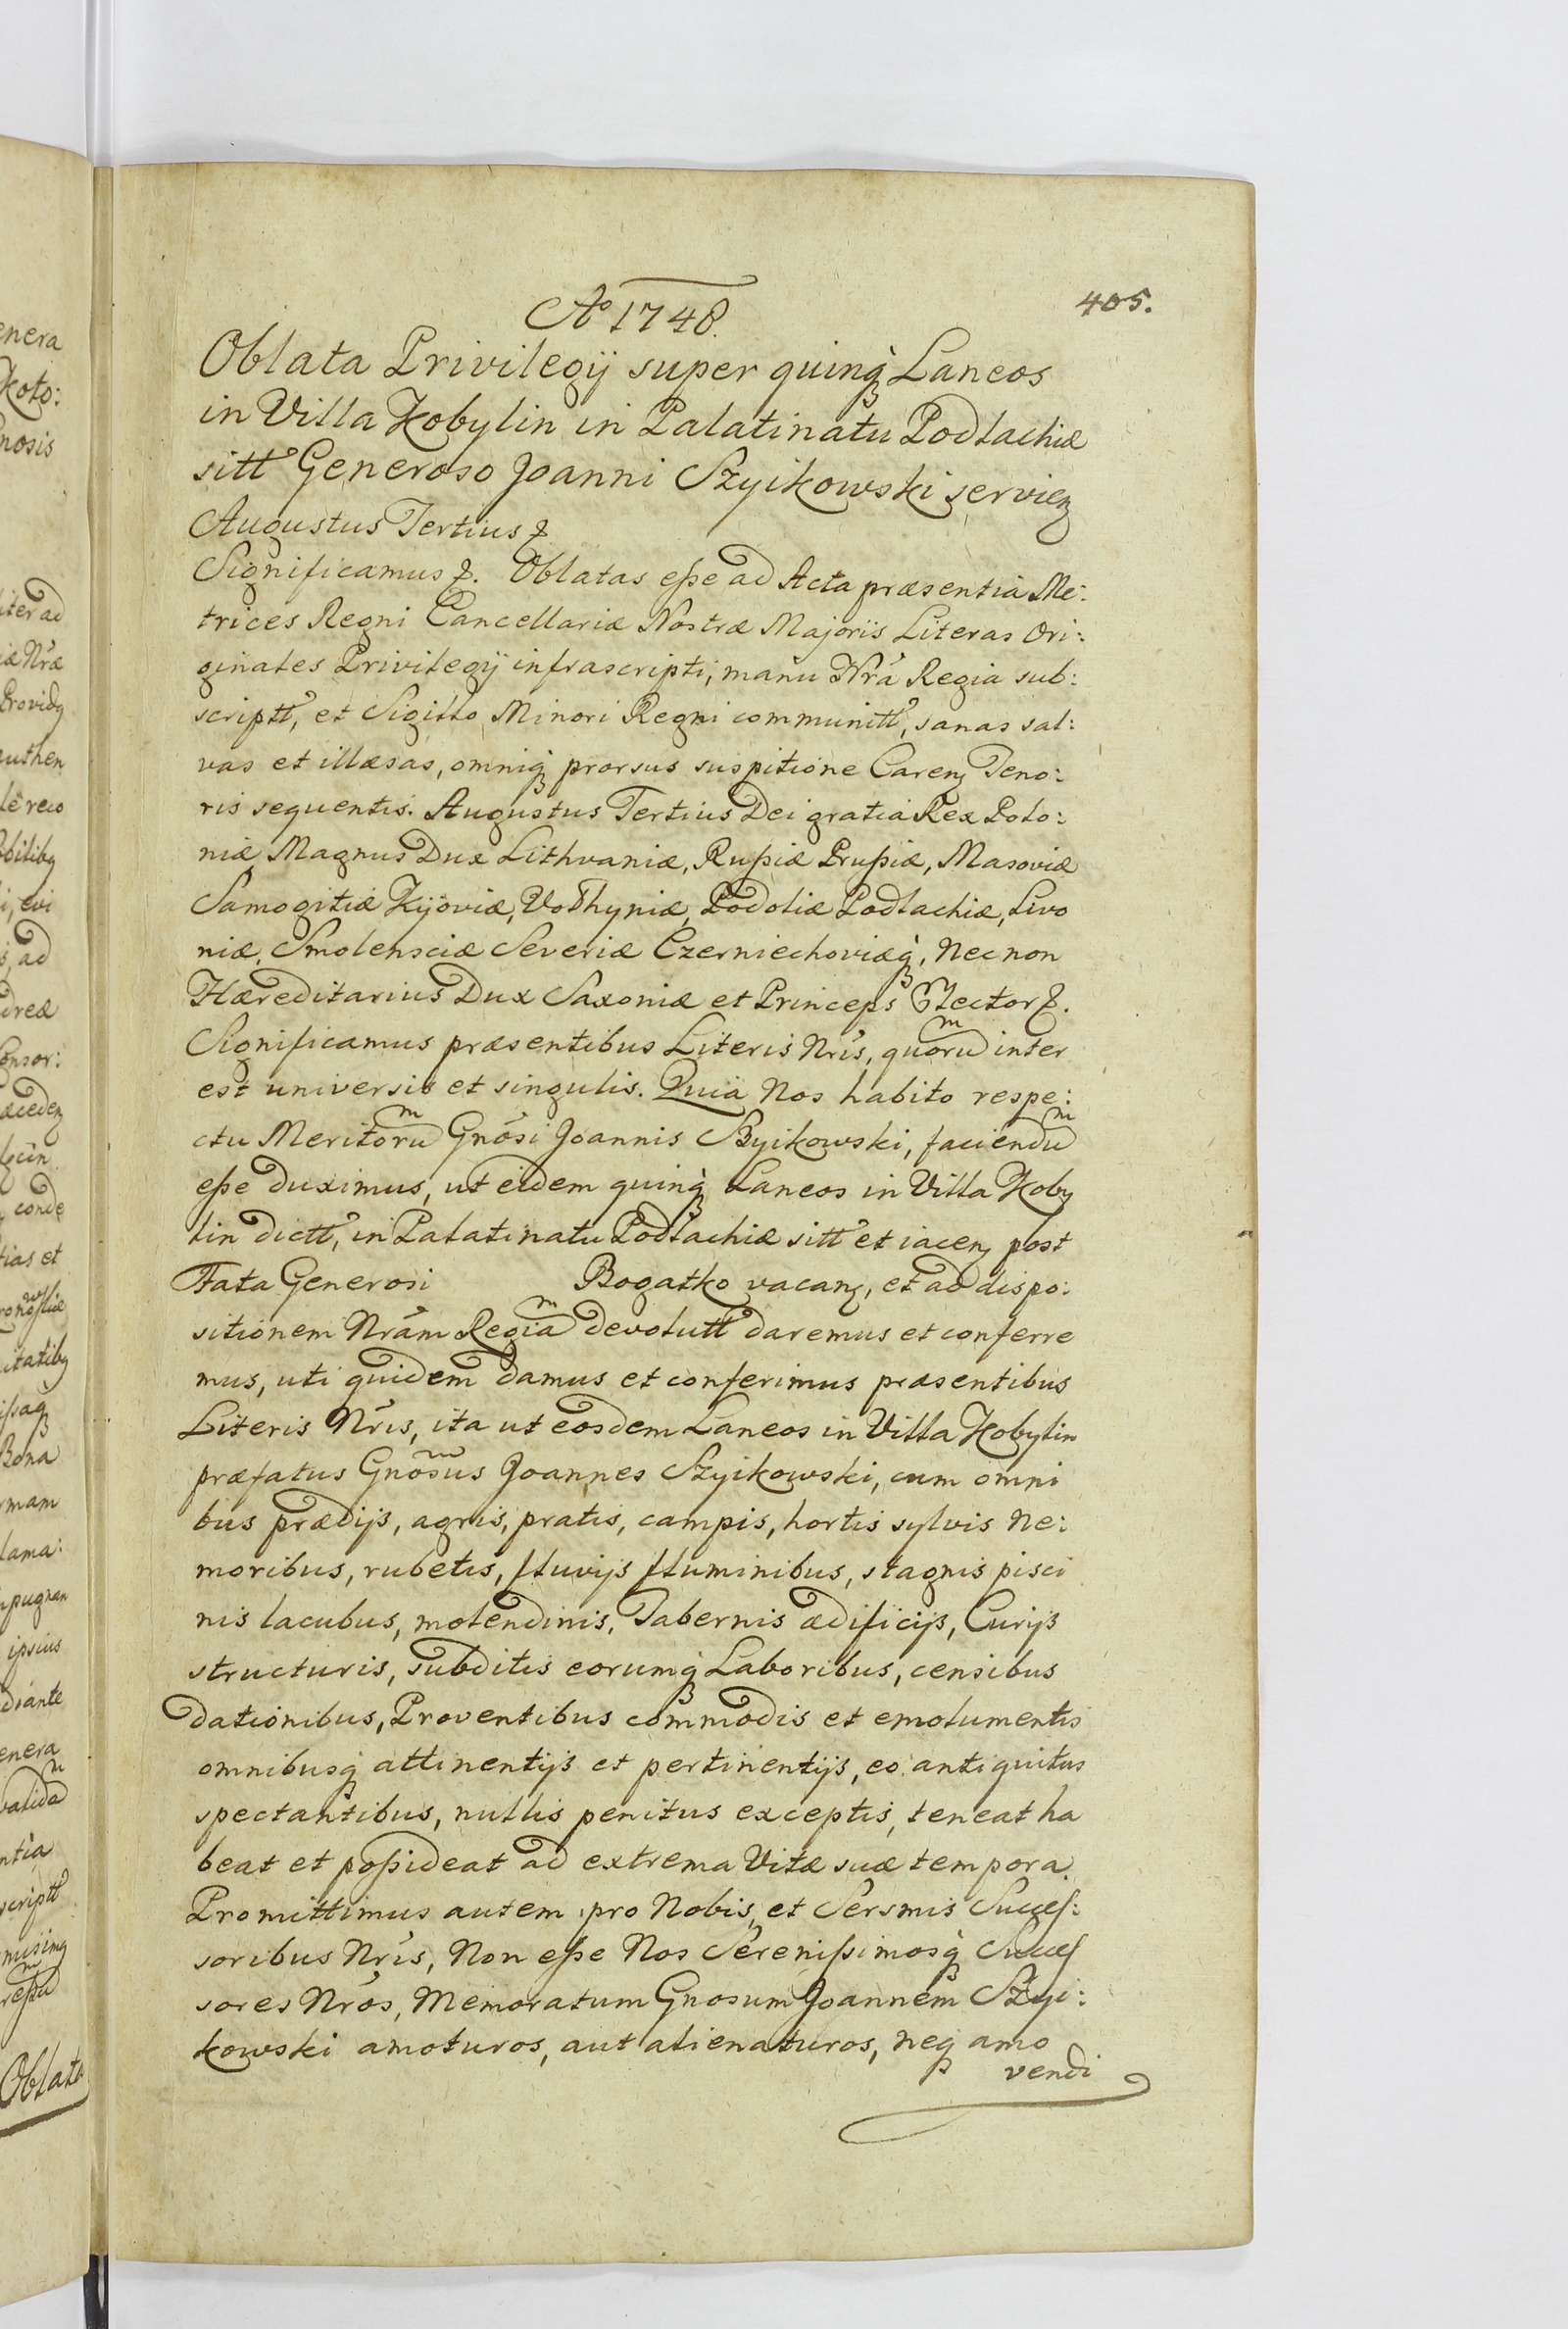 405.
Aº 1748.
Oblata Privilegij super quinq̀ Laneos
in Villa Kobylin in Palatinatu Podlachiæ
sitt' Generoso Joanni Szyikowski servien
Augustus Tertius &
Significamus &. Oblatas eße ad Acta præsentia Me:
trices Regni Cancellariæ Nostræ Majoris Literas Ori:
ginales Privilegij infrascripti, manu Nrá Regia sub:
scriptt', et Sigillo Minori Regni communitt', sanas sal:
vas et illæsas, omniq̀ prorsus suspitione Caren Teno:
ris sequentis. Augustus Tertius Dei gratia Rex Polo:
niæ Magnus Dux Lithvaniæ, Rußiæ Prußiæ, Masoviæ
Samogitiæ Kijoviæ, Volhyniæ, Podoliæ Podlachiæ, Livo
niæ, Smolensciæ Severiæ Czerniechoviæq̀, Nec non
Hæreditarius Dux Saxoniæ et Princeps Elector &.
Significamus præsentibus Literis Nrís, quoruᵐ inter
est universis et singulis. Quia Nos habito respe:
ctu Meritoruᵐ Gnósi Joannis Szyikowski, facienduᵐ
eße duximus, ut eidem quinq̀ Laneos in Villa Koby
lin dictt', in Palatinatu Podlachiæ sitt' et iacen post
Fata Generosi Bogatko vacan, et ad dispo:
sitionem Nrám Regiaᵐ devolutt' daremus et conferre
mus, uti quidem damus et conferimus præsentibus
Literis Nrís, ita ut eosdem Laneos in Villa Kobylin
præfatus Gnõsus Joannes Szyikowski, cum omni
bus prædijs, agris, pratis, campis, hortis sylvis Ne:
moribus, rubetis, fluvijs fluminibus, stagnis pisci
nis lacubus, molendinis, Tabernis ædificijs, Curijs
structuris, subditis eorumq̀ Laboribus, censibus
dationibus, Proventibus commodis et emolumentis
omnibusq̀ attinentijs et pertinentijs, eo antiquitus
spectantibus, nullis penitus exceptis, teneat ha
beat et poßideat ad extrema Vitæ suæ tempora.
Promittimus autem pro Nobis, et Sersmis Succeſ:
soribus Nrís, Non eße Nos Serenißimosq̀ Succeſ
sores Nrós, Memoratum Gnosum Joannem Szyi:
kowski amoturos, aut alienaturos, neq̀ amo
vendi